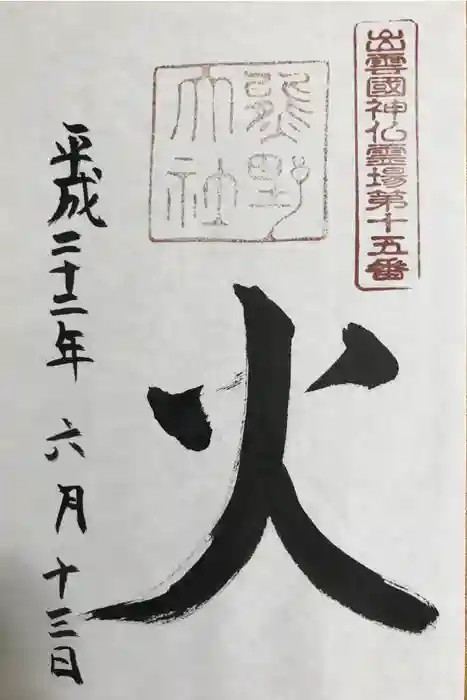 出雲國神仏霊場第十五番
熊野
大社
火
平成二十二年 六月十三日